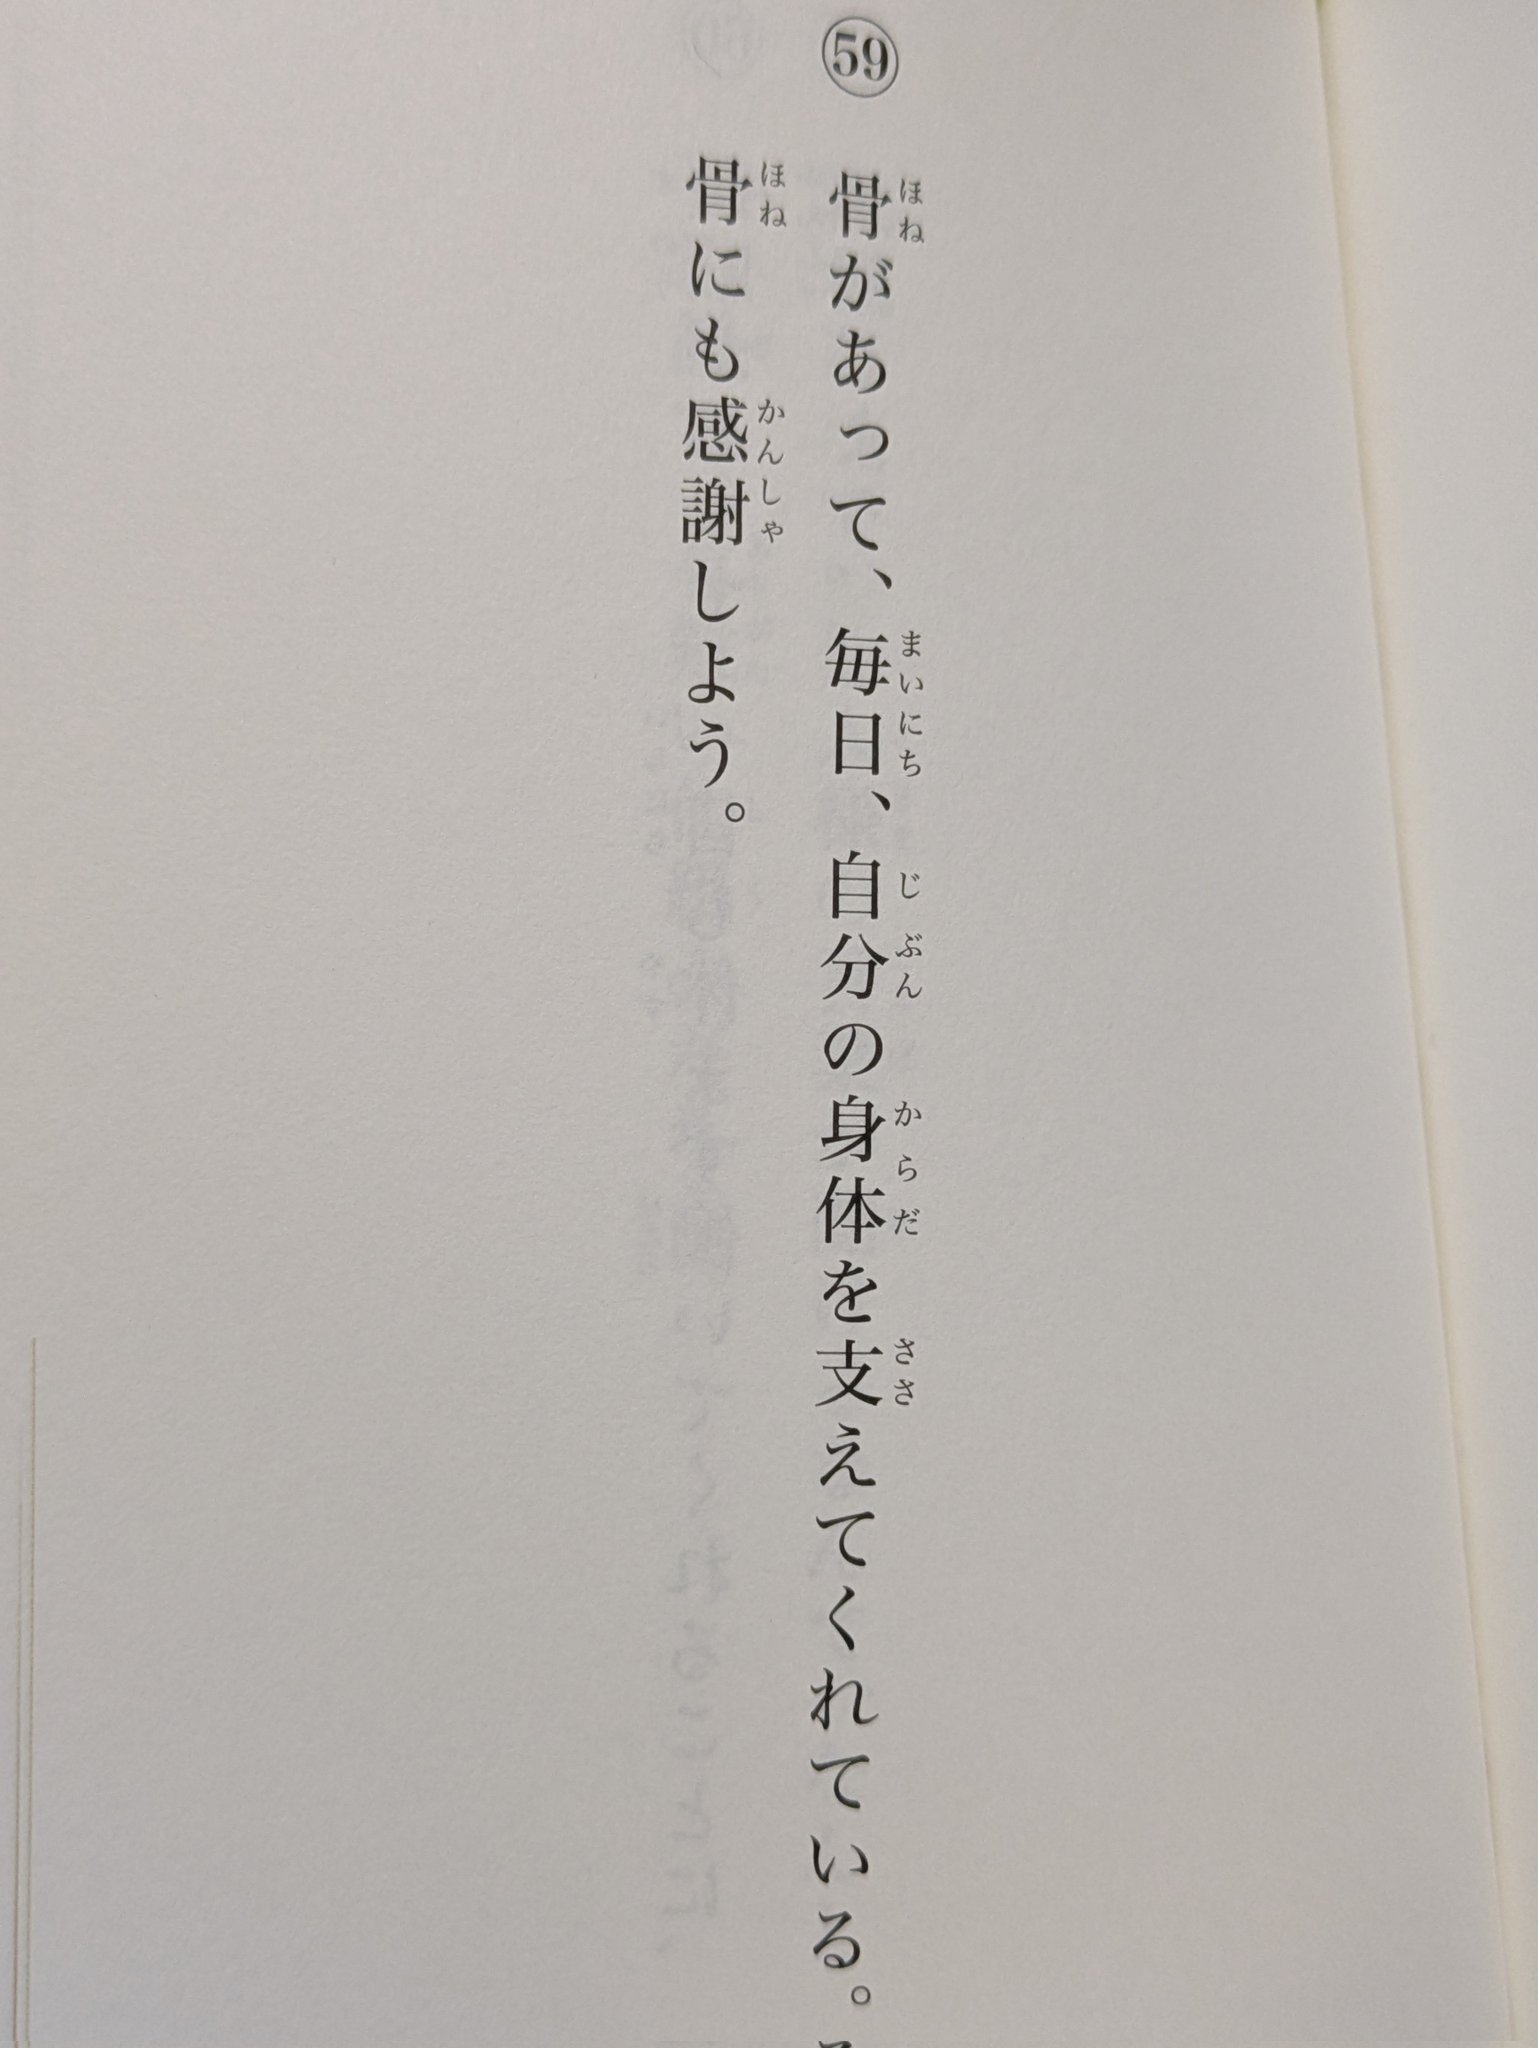 59
骨があって、毎日、自分の身体を支えてくれている。
ほね まいにち じぶん からだ ささ
骨にも感謝しよう。
ほね かんしゃ